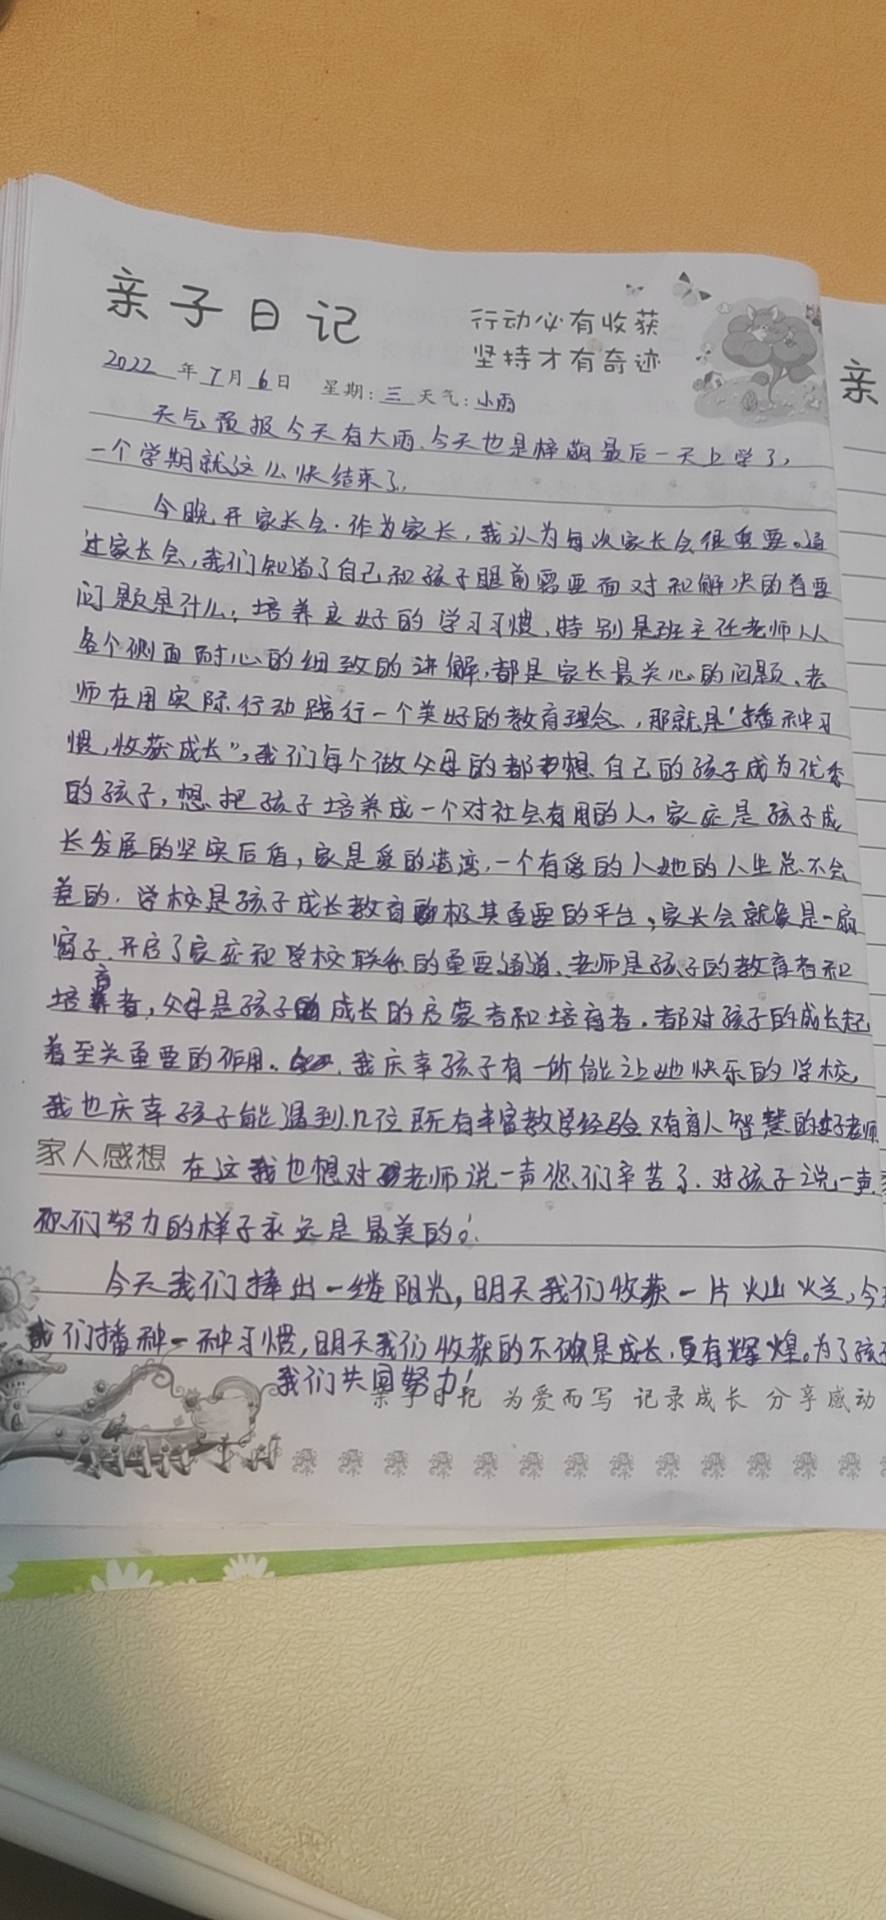 亲子日记
行动必有收获
坚持才有奇迹
2022年7月6日 星期:三 天气:小雨
天气预报今天有大雨.今天也是梓萌最后一天上学了,
一个学期就这么快结束了.
今晚开家长会.作为家长,我认为每次家长会很重要。通
过家长会,我们知道了自己和孩子眼前需要面对和解决的首要
问题是什么;培养良好的学习习惯,特别是班主任老师从
各个侧面耐心的细致的讲解,都是家长最关心的问题、老
师在用实际行动践行一个美好的教育理念,那就是“播种习
惯,收获成长”,我们每个做父母的都想自己的孩子成为优秀
的孩子,想把孩子培养成一个对社会有用的人,家庭是孩子成
长发展的坚实后盾,家是爱的港湾,一个有爱的人她的人生总不会
差的.学校是孩子成长教育极其重要的平台,家长会就象是一扇
窗子.开启了家庭和学校联系的重要通道、老师是孩子的教育者和
培育者,父母是孩子成长的启蒙者和培育者.都对孩子的成长起
着至关重要的作用。我庆幸孩子有一所能让她快乐的学校,
我也庆幸孩子能遇到几位既有丰富教学经验又有育人智慧的好老师
家人感想 在这我也想对老师说一声您们辛苦了.对孩子说一声
你们努力的样子永远是最美的!
今天我们捧出一缕阳光,明天我们收获一片灿烂,今
我们播种一种习惯,明天我们收获的不仅是成长,更有辉煌。为了孩子
我们共同努力!
亲子日记 为爱而写 记录成长 分享感动
亲